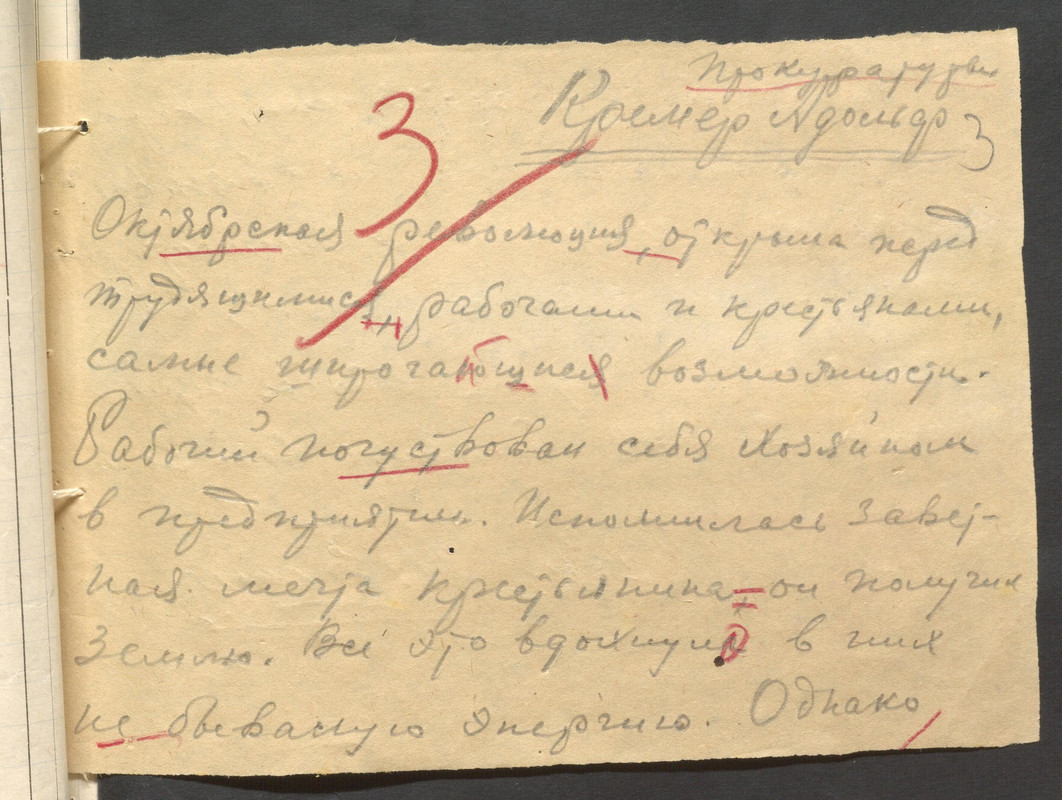 Прокуратуры
Кремер Адольф 3
3
Октябрская революция, открыла перед
трудящимися, рабочами и крестьянами,
самые возможности.
Рабочий почуствовал себя хозяином
в предприятии. Исполнилась завет-
ная мечта крестьянина, он получил
землю. Всё это вдохнуло в них
не бывалую энергию. Однако